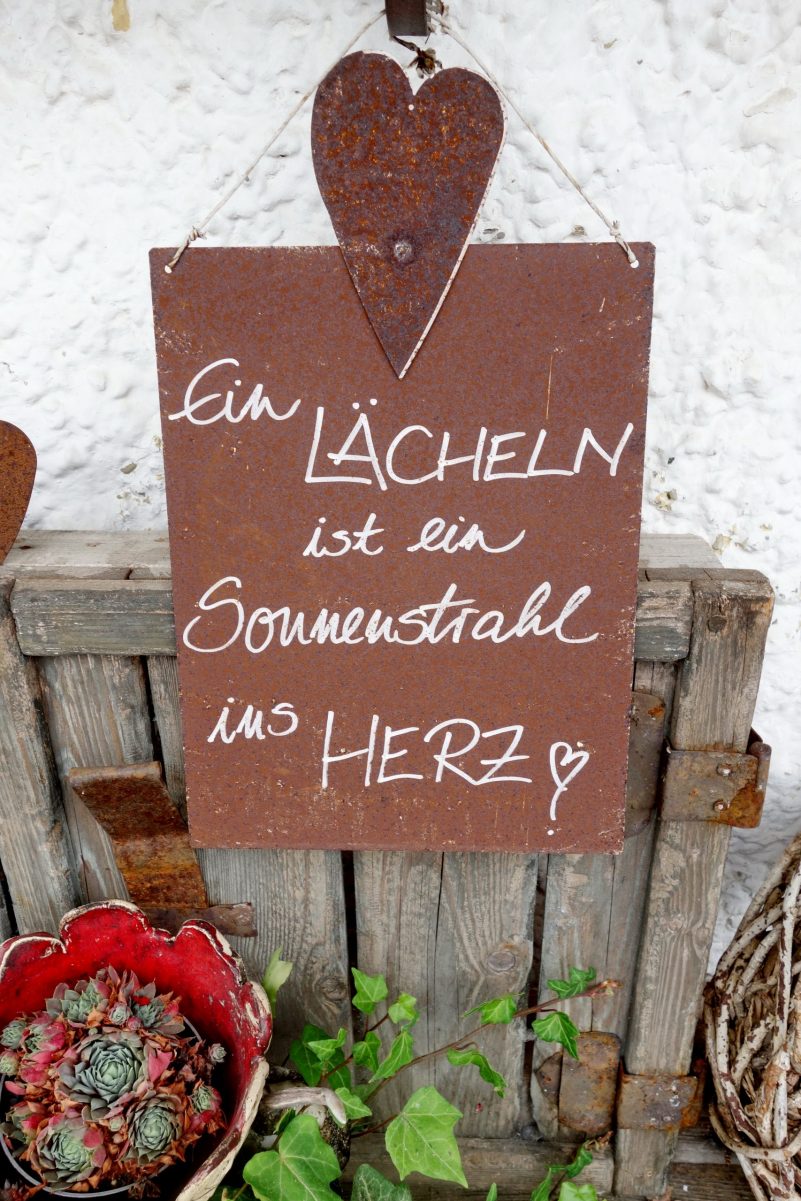 Ein
LÄCHELN
ist ein
Sonnenstrahl
ins HERZ